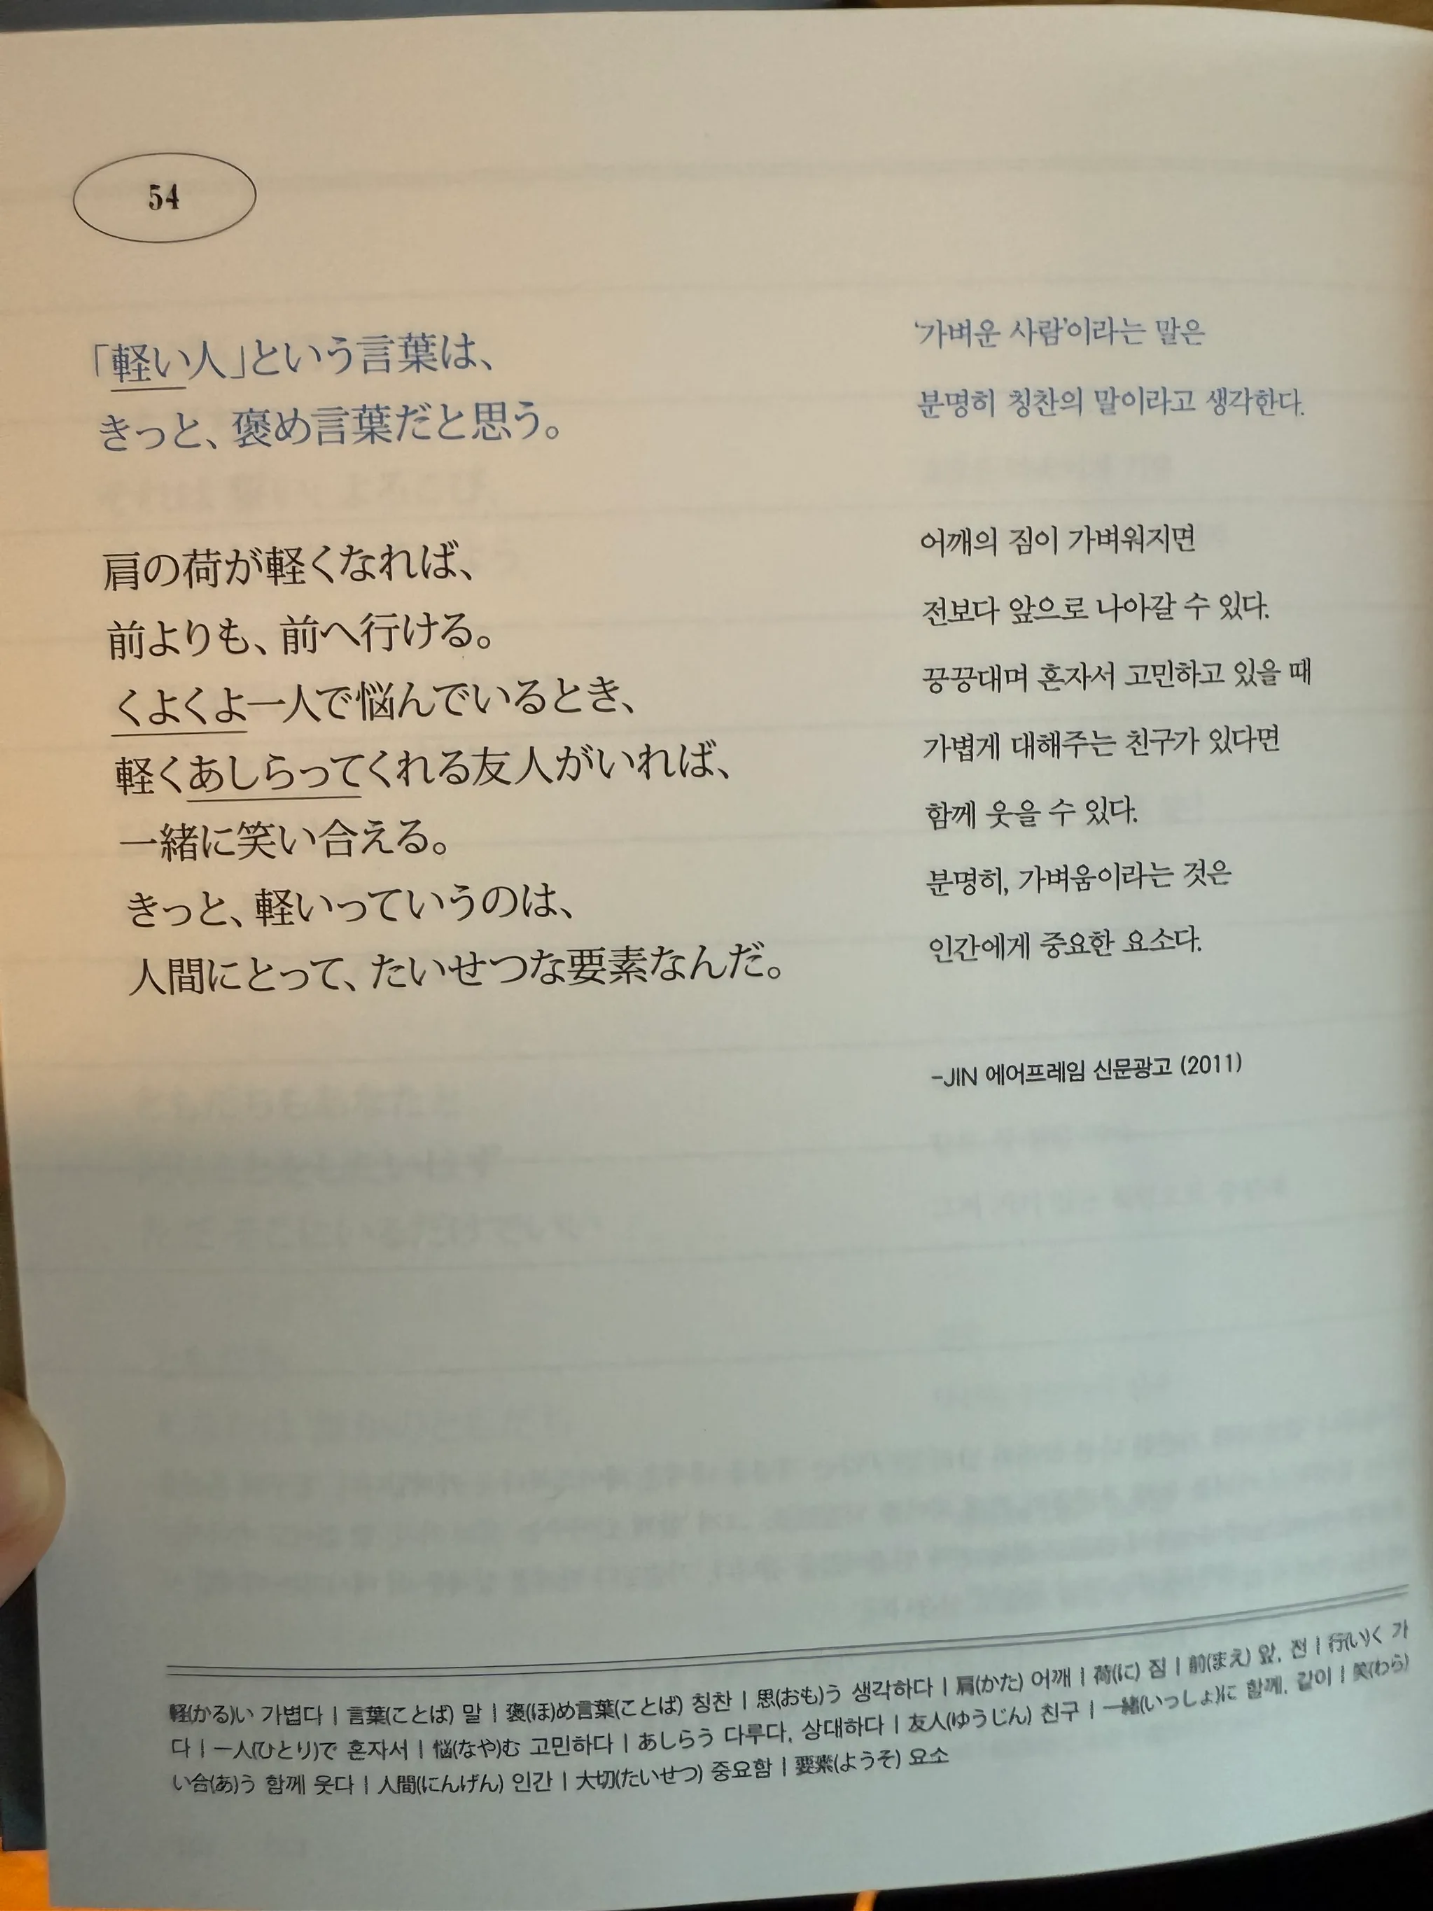 54
「軽い人」という言葉は、
きっと、褒め言葉だと思う。
肩の荷が軽くなれば、
前よりも、前へ行ける。
くよくよ一人で悩んでいるとき、
軽くあしらってくれる友人がいれば、
一緒に笑い合える。
きっと、軽いっていうのは、
人間にとって、たいせつな要素なんだ。
‘가벼운 사람’이라는 말은
분명히 칭찬의 말이라고 생각한다.
어깨의 짐이 가벼워지면
전보다 앞으로 나아갈 수 있다.
끙끙대며 혼자서 고민하고 있을 때
가볍게 대해주는 친구가 있다면
함께 웃을 수 있다.
분명히, 가벼움이라는 것은
인간에게 중요한 요소다.
-JIN 에어프레임 신문광고 (2011)
軽(かる)い 가볍다 | 言葉(ことば) 말 | 褒(ほ)め言葉(ことば) 칭찬 | 思(おも)う 생각하다 | 肩(かた) 어깨 | 荷(に) 짐 | 前(まえ) 앞, 전 | 行(い)く 가
다 | 一人(ひとり)で 혼자서 | 悩(なや)む 고민하다 | あしらう 다루다, 상대하다 | 友人(ゆうじん) 친구 | 一緒(いっしょ)に 함께, 같이 | 笑(わら)
い合(あ)う 함께 웃다 | 人間(にんげん) 인간 | 大切(たいせつ) 중요함 | 要素(ようそ) 요소